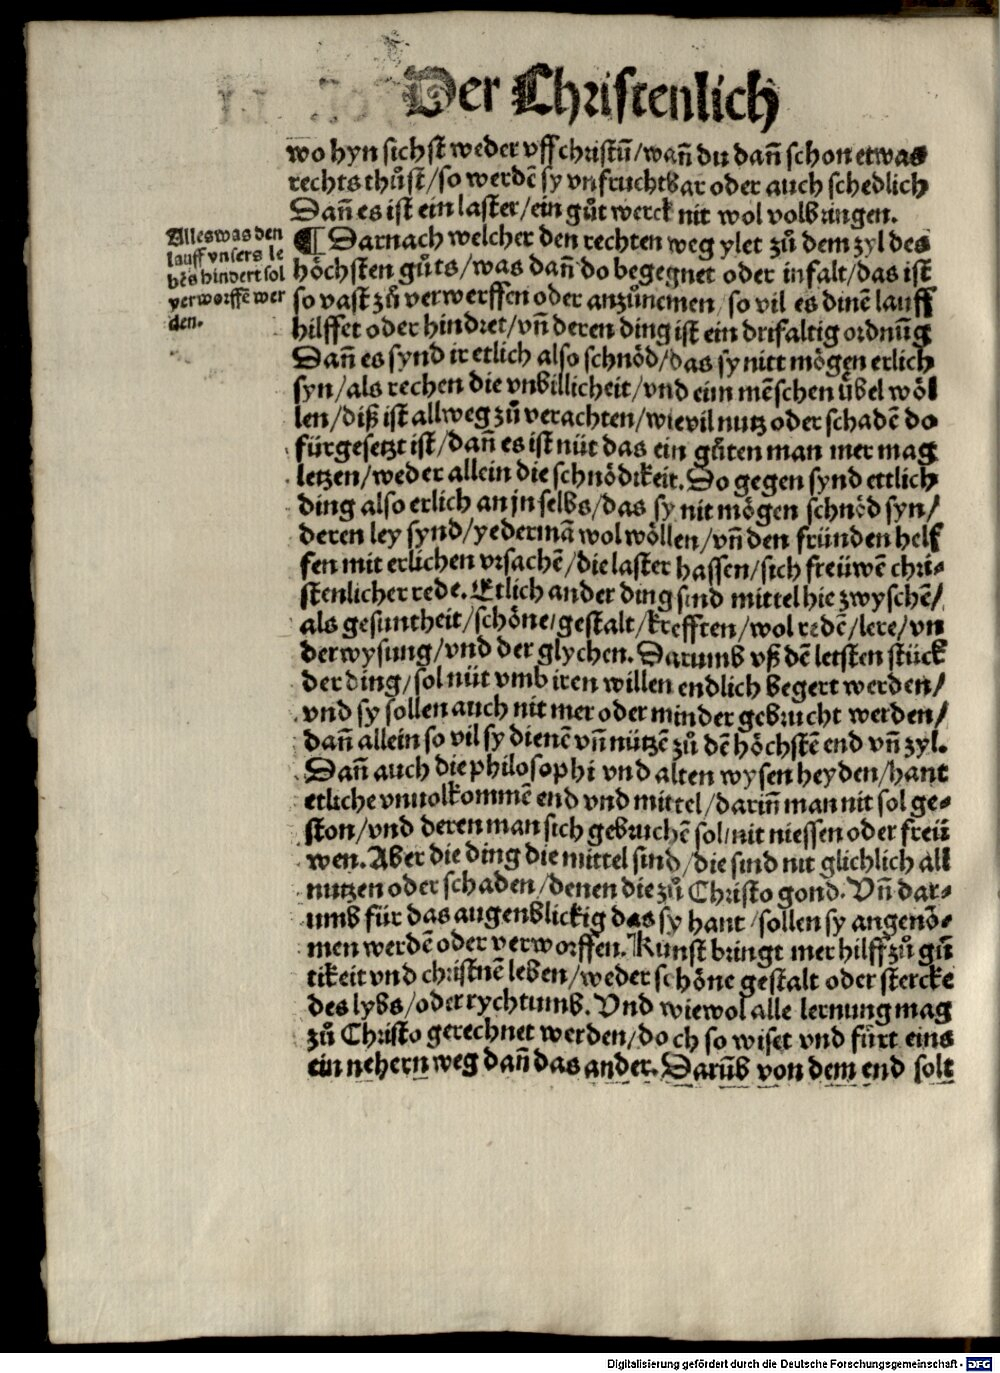 Der Christenlich
wo hyn sichst weder vff christū/wañ du dañ schon etwas
rechts thůst/so werdē sy vnfruchtbar oder auch schedlich
Dañ es ist ein laster/ein gůt werck nit wol volbringen.
Alles was den
lauff vnsers le
bēs hindert sol
verworffē wer
den.
¶ Darnach welcher den rechten weg ylet zů dem zyl des
höchsten gůts/was dañ do begegnet oder infalt/das ist
so vast zů verwerffen oder anzůnemen/so vil es dinē lauff
hilffet oder hindret/vñ deren ding ist ein drifaltig ordnūg
Dañ es synd ir etlich also schnöd/das sy nitt mögen erlich
syn/als rechen die vnbillicheit/vnd eim mēschen übel wöl
len/diß ist allweg zů verachten/wievil nutz oder schadē do
fürgesetzt ist/dañ es ist nüt das ein gůten man mer mag
letzen/weder allein die schnödikeit. Do gegen synd ettlich
ding also erlich an jn selbs/das sy nit mögen schnöd syn/
deren ley synd/yedermā wol wöllen/vñ den fründen helf
fen mit erlichen vrsachē/die laster hassen/sich freüwē chri-
stenlicher rede. Etlich ander ding sind mittel hie zwyschē/
als gesuntheit/schöne/gestalt/krefften/wol redē/lere/vn
derwysung/vnd der glychen. Darumb vß dē letsten stück
der ding/sol nüt vmb iren willen endlich begert werden/
vnd sy sollen auch nit mer oder minder gebrucht werden/
dañ allein so vil sy dienē vñ nützē zů dē höchstē end vñ zyl.
Dañ auch die philosophi vnd alten wysen heyden/hant
etliche vnuolkommē end vnd mittel/dariñ man nit sol ge-
ston/vnd deren man sich gebruchē sol/nit niessen oder freü
wen. Aber die ding die mittel sind/die sind nit glichlich all
nutzen oder schaden/denen die zů Christo gond. Vñ dar-
umb für das augenblickig das sy hant/sollen sy angenō-
men werdē oder verworffen. Kunst bringt mer hilff zů gů
tikeit vnd christnē leben/weder schöne gestalt oder stercke
des lybs/oder rychtumb. Vnd wiewol alle lernung mag
zů Christo gerechnet werden/doch so wiset vnd fürt eins
ein nehern weg dañ das ander. Darūb von dem end solt
Digitalisierung gefördert durch die Deutsche Forschungsgemeinschaft - DFG